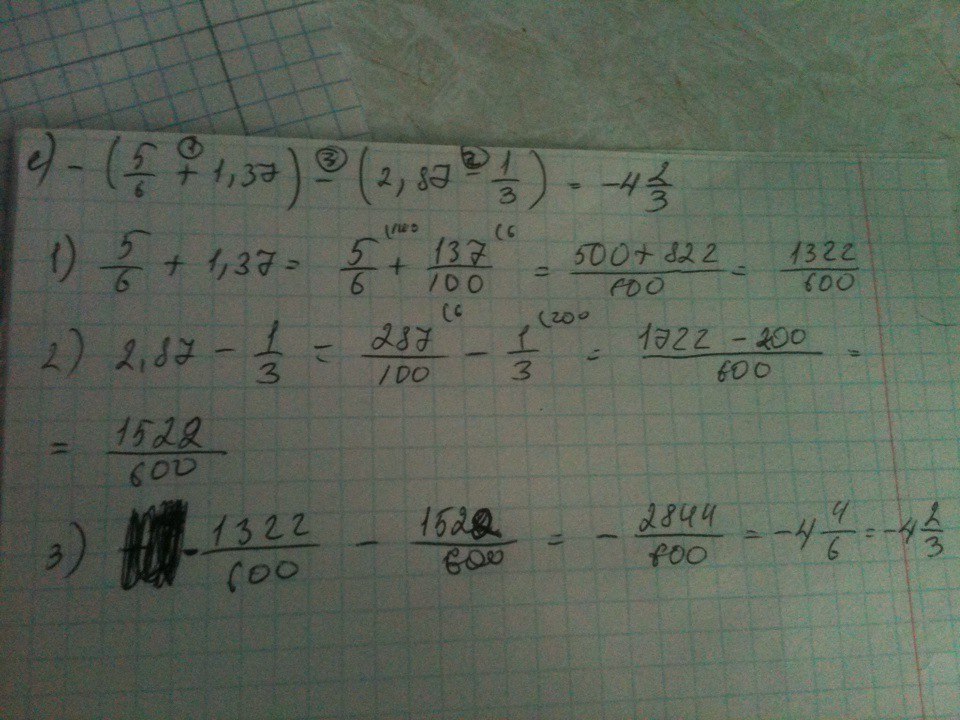 e) - (5/6 + 1,37) - (2,87 - 1/3) = -4 2/3
1) 5/6 + 1,37 = 5/6 + 137/100 = 500+822/600 = 1322/600
2) 2,87 - 1/3 = 287/100 - 1/3 = 1722-200/600 =
= 1522/600
3) -1322/600 - 1522/600 = - 2844/600 = -4 4/6 = -4 2/3